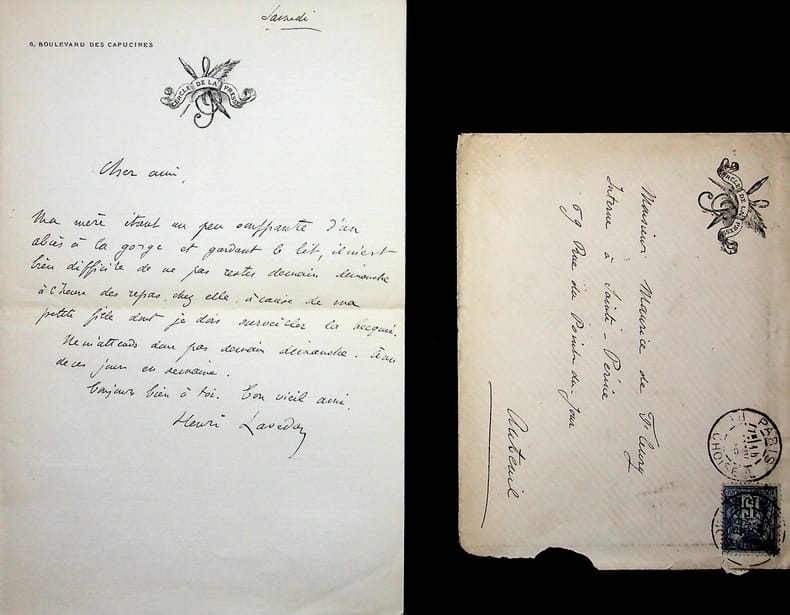 Samedi
6, BOULEVARD DES CAPUCINES
CERCLE DE LA PRESSE
Cher ami,
Ma mère étant un peu souffrante d'un
abcès à la gorge et gardant le lit, il m'est
bien difficile de ne pas rester demain dimanche
à l'heure des repas chez elle à cause de ma
petite fille dont je dois surveiller la becquée.
Ne m'attends donc pas demain dimanche.
de ces jours en semaine.
Toujours bien à toi. Ton vieil ami.
Henri Lavedan
CERCLE DE LA PRESSE
Monsieur Maurice de Fleury
Interne à Sainte-Périne
69 Rue du Point du Jour
Auteuil
PARIS
15